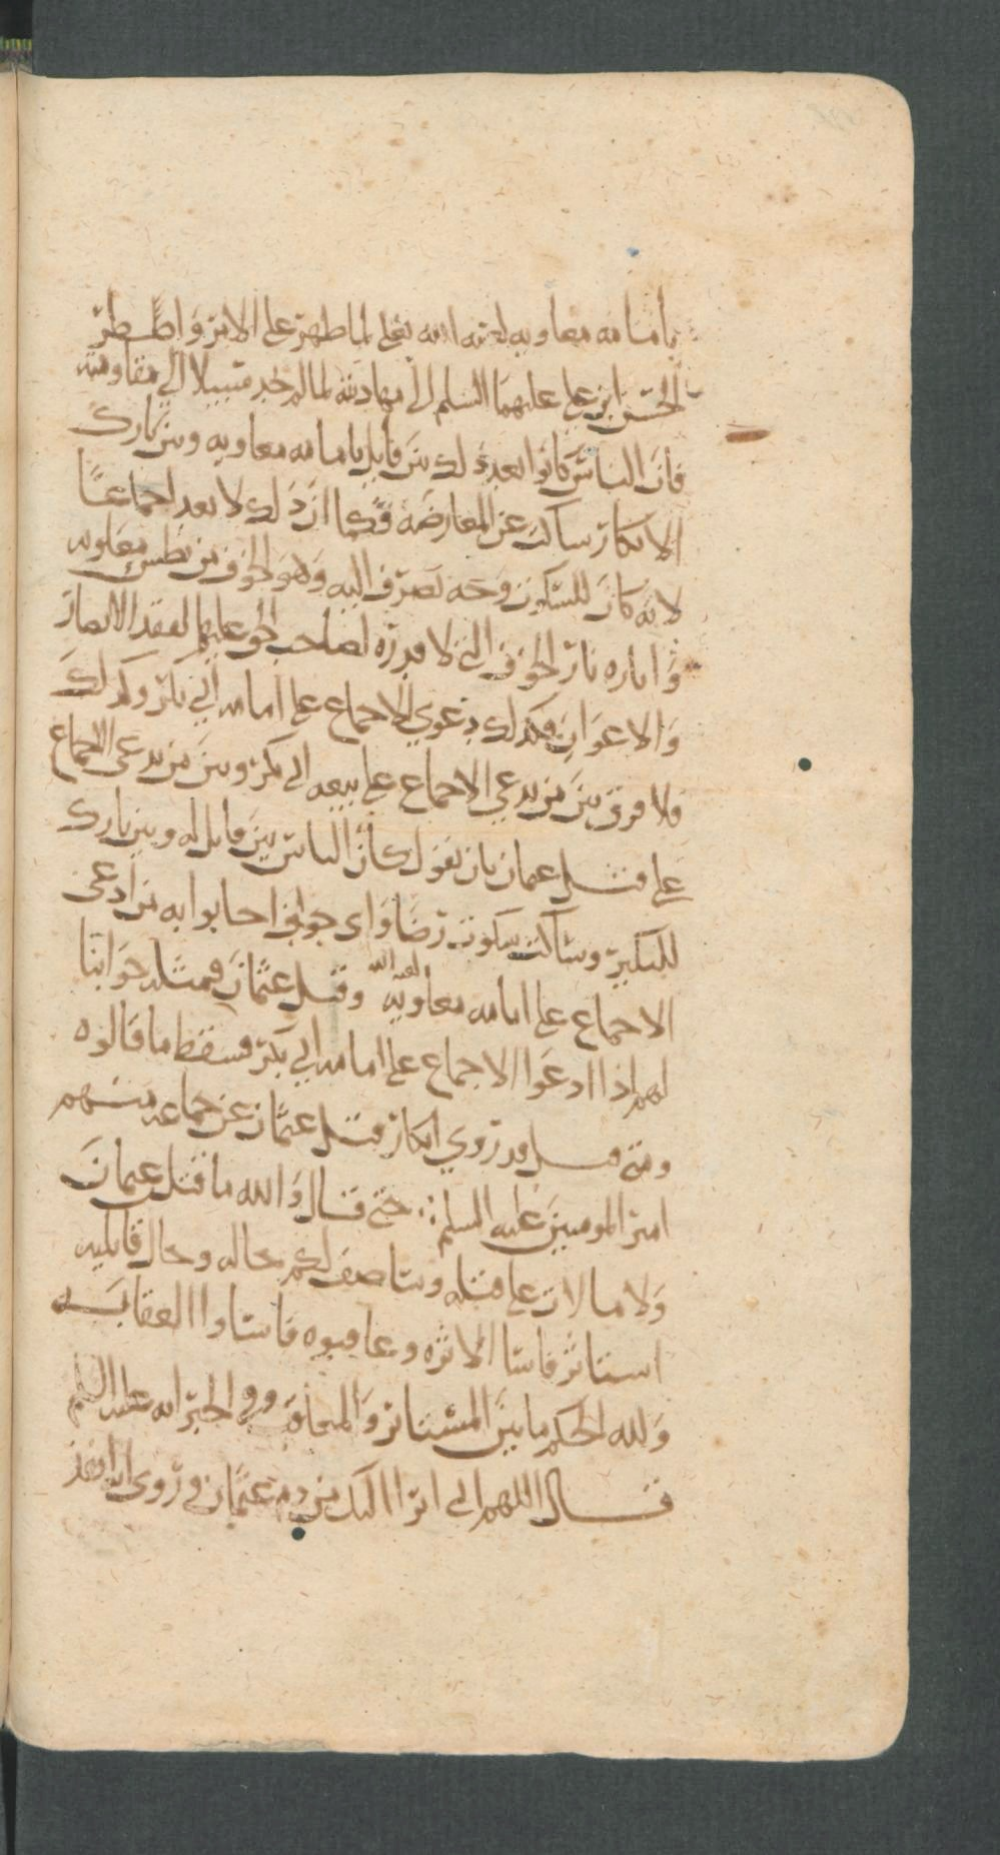 بامامه معاويه لعنه الله فعلى لما ظهر على الامر واططر
الحسن ابن علي عليهما السلم الى مهادنته لما لم يجد سبيلا الى مقاومته
فان الناس كانوا بعد ذلك بين قايل بامامه معاويه وبين تارك
الانكار ساكت عن المعارضه فكما ان ذلك لا يعد اجماعا
لانه كان للسكوت وجه تصرف اليه وهو الخوف من بطش معاويه
واثاره نار الخوف التي لا قدره لصاحب الحق عليها لفقد الانصار
والاعوان فكذلك دعوى الاجماع على امامه ابي بكر وكذلك
فلا فرق بين من يدعي الاجماع على بيعه ابي بكر وبين من يدعي الاجماع
على قتل عثمان بان يقول كان الناس بين قايل له وبين تارك
للنكير وساكت سكوت رضا واي جواب اجابوا به من ادعى
الاجماع على امامه معاويه لعنه الله وقتل عثمان فمثله جوابنا
لهم اذا ادعوا الاجماع على امامه ابي بكر فسقط ما قالوه
ومتى قيل قد روي انكار قتل عثمان عن جماعه منهم
امير المومنين عليه السلم حتى قال والله ما قتلت عثمان
ولا مالات على قتله وساصف لكم حاله وحال قاتليه
استاثر فاسا الاثره وعاقبوه فاساوا العقاب
ولله الحكم ما بين المستاثر والمعاقب وفي الخبر انه عليه السلم
قال اللهم اني ابرا اليك من دم عثمان وروي انه